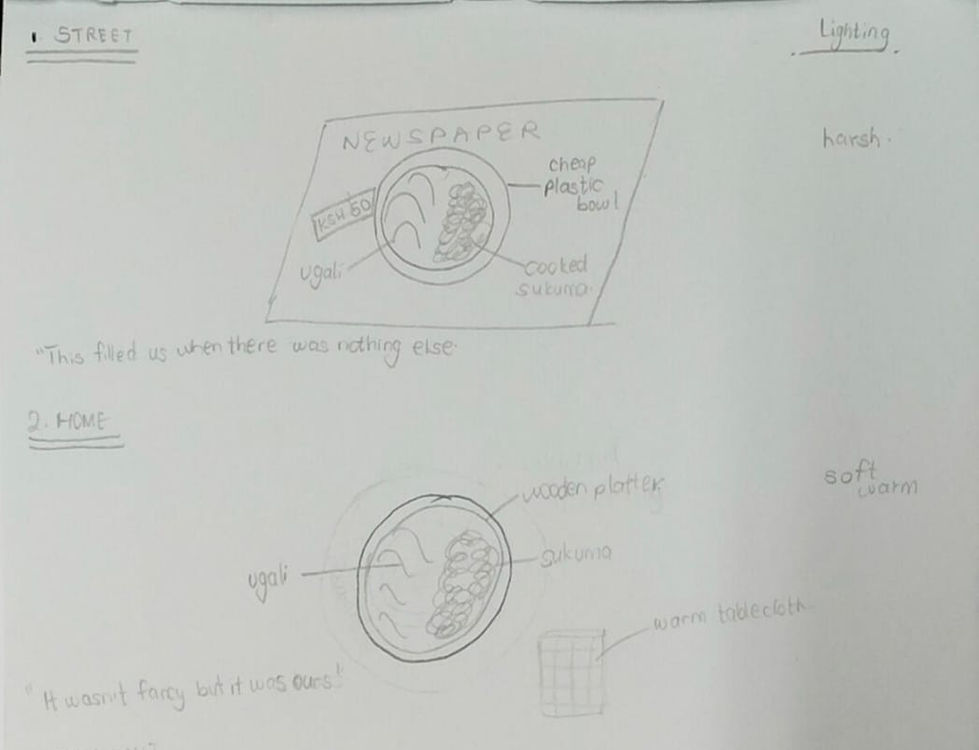 1 STREET
Lighting
NEWSPAPER
harsh.
cheap
plastic
bowl
KSH 50
ugali
cooked
sukuma.
"This filled us when there was nothing else.
2. HOME
soft
warm
wooden platter
sukuma
ugali
warm tablecloth
"It wasn't fancy but it was ours!"